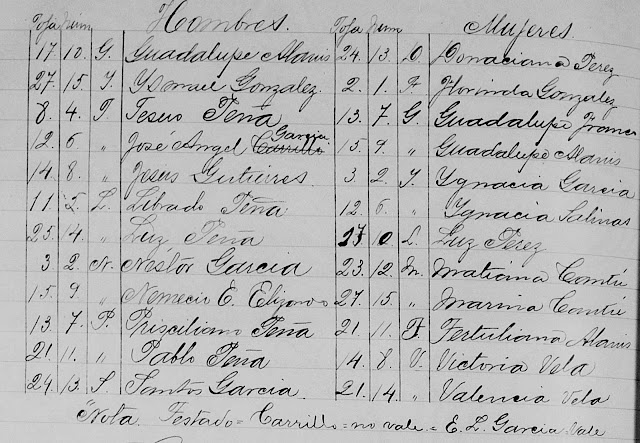 Foja Num Hombres. Foja Num Mujeres.
17 10. G. Guadalupe Alanis 24 13. D. Donaciana Perez
27. 15. Y. Ysmael Gonzalez. 2. 1. F. Florinda Gonzalez
8. 4. T. Tesero Peña 13. 7. G. Guadalupe Franco
12. 6. " José Angel Carrillo Garcia 15. 9. " Guadalupe Alanis
14. 8. " Jesus Gutierres. 3 2. Y. Ygnacia Garcia
11. 5. L. Librado Peña 12. 6. " Ygnacia Salinas
25. 14. " Luz Peña 17 10. L. Luz Perez
3 2. N. Nestor Garcia 23. 12. M. Maticima Cantú
15. 9. " Nemecio E. Elizondo 27. 15. " Marina Cantú
13. 7. P. Prisciliano Peña 21 11. T. Tertuliana Alanis
21 11. " Pablo Peña 14. 8. V. Victoria Vela
24. 13. S. Santos Garcia. 21. 14. " Valencia Vela
"Nota. Testado = Carrillo = no vale = E. L. Garcia-Vale